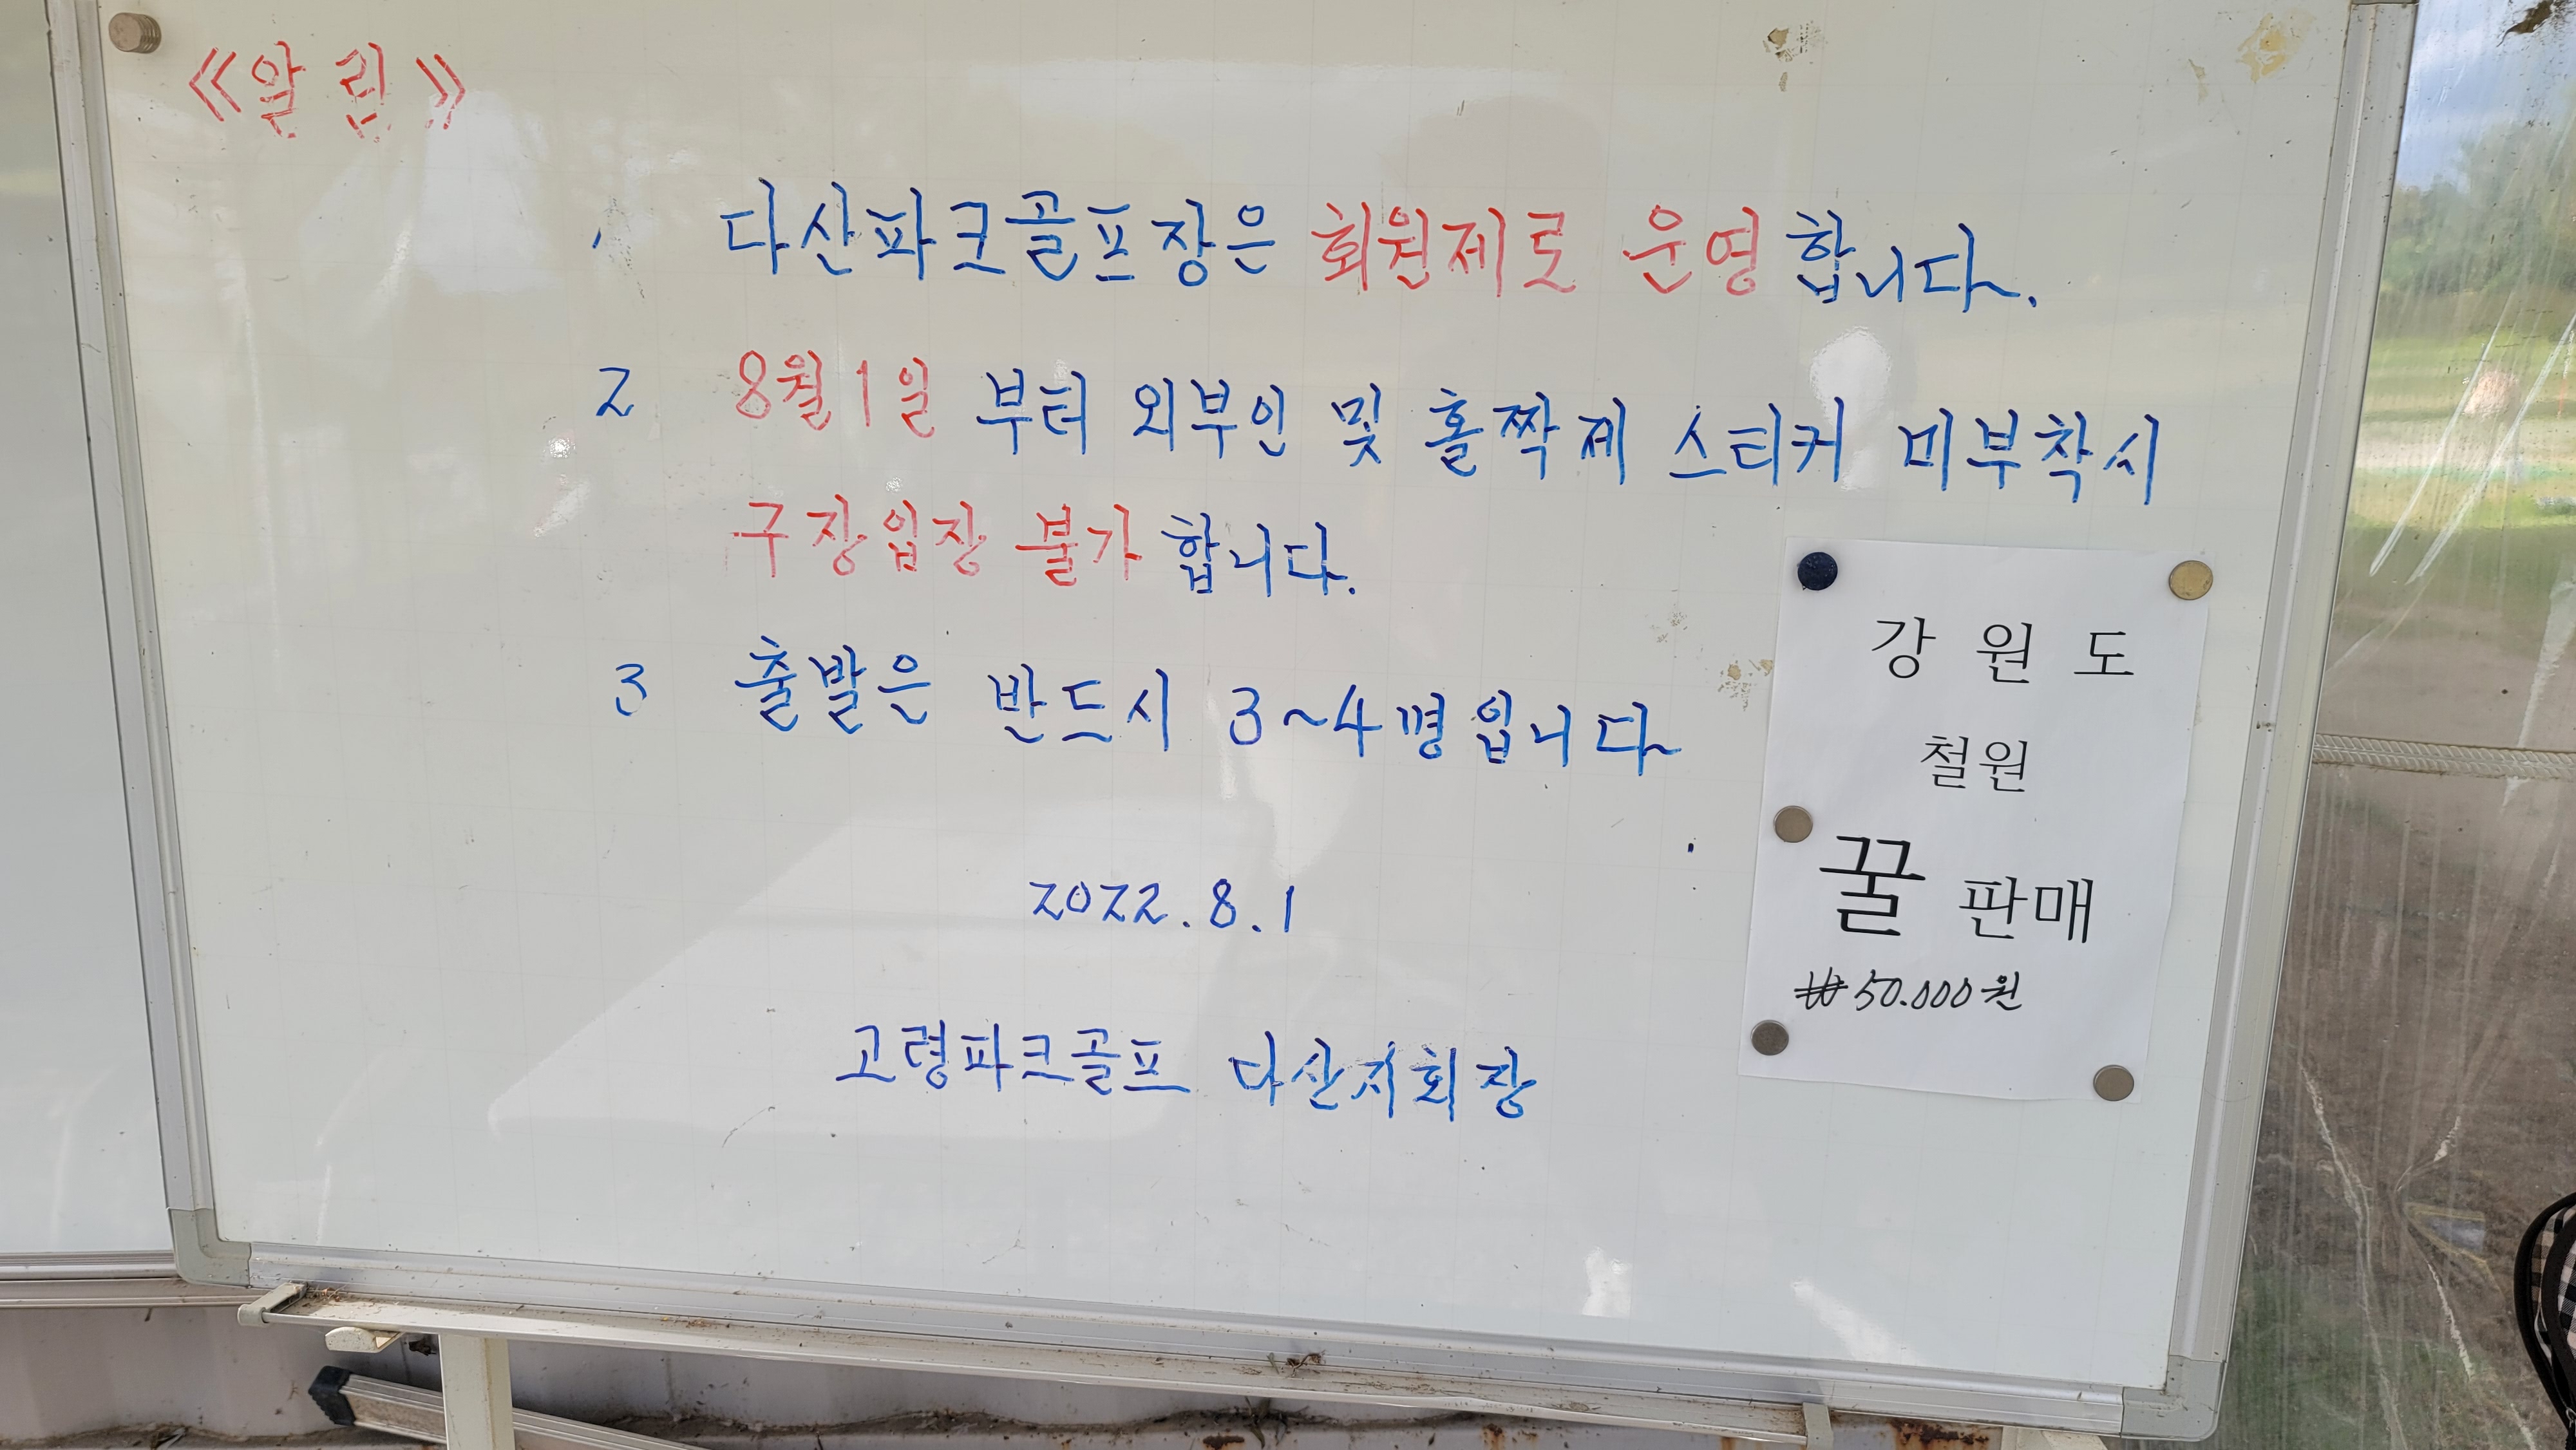 《알 림》
1 다산파크골프장은 회원제로 운영합니다.
2 8월1일 부터 외부인 및 홀짝제 스티커 미부착시
구장입장 불가 합니다.
3 출발은 반드시 3~4명입니다
2022.8.1
고령파크골프 다산지회장
강 원 도
철원
꿀 판매
₩50.000원